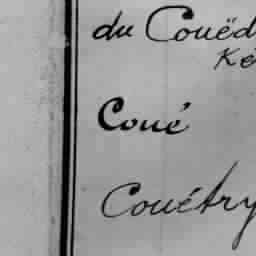 du Couëd
Ké
Coué
Couétry